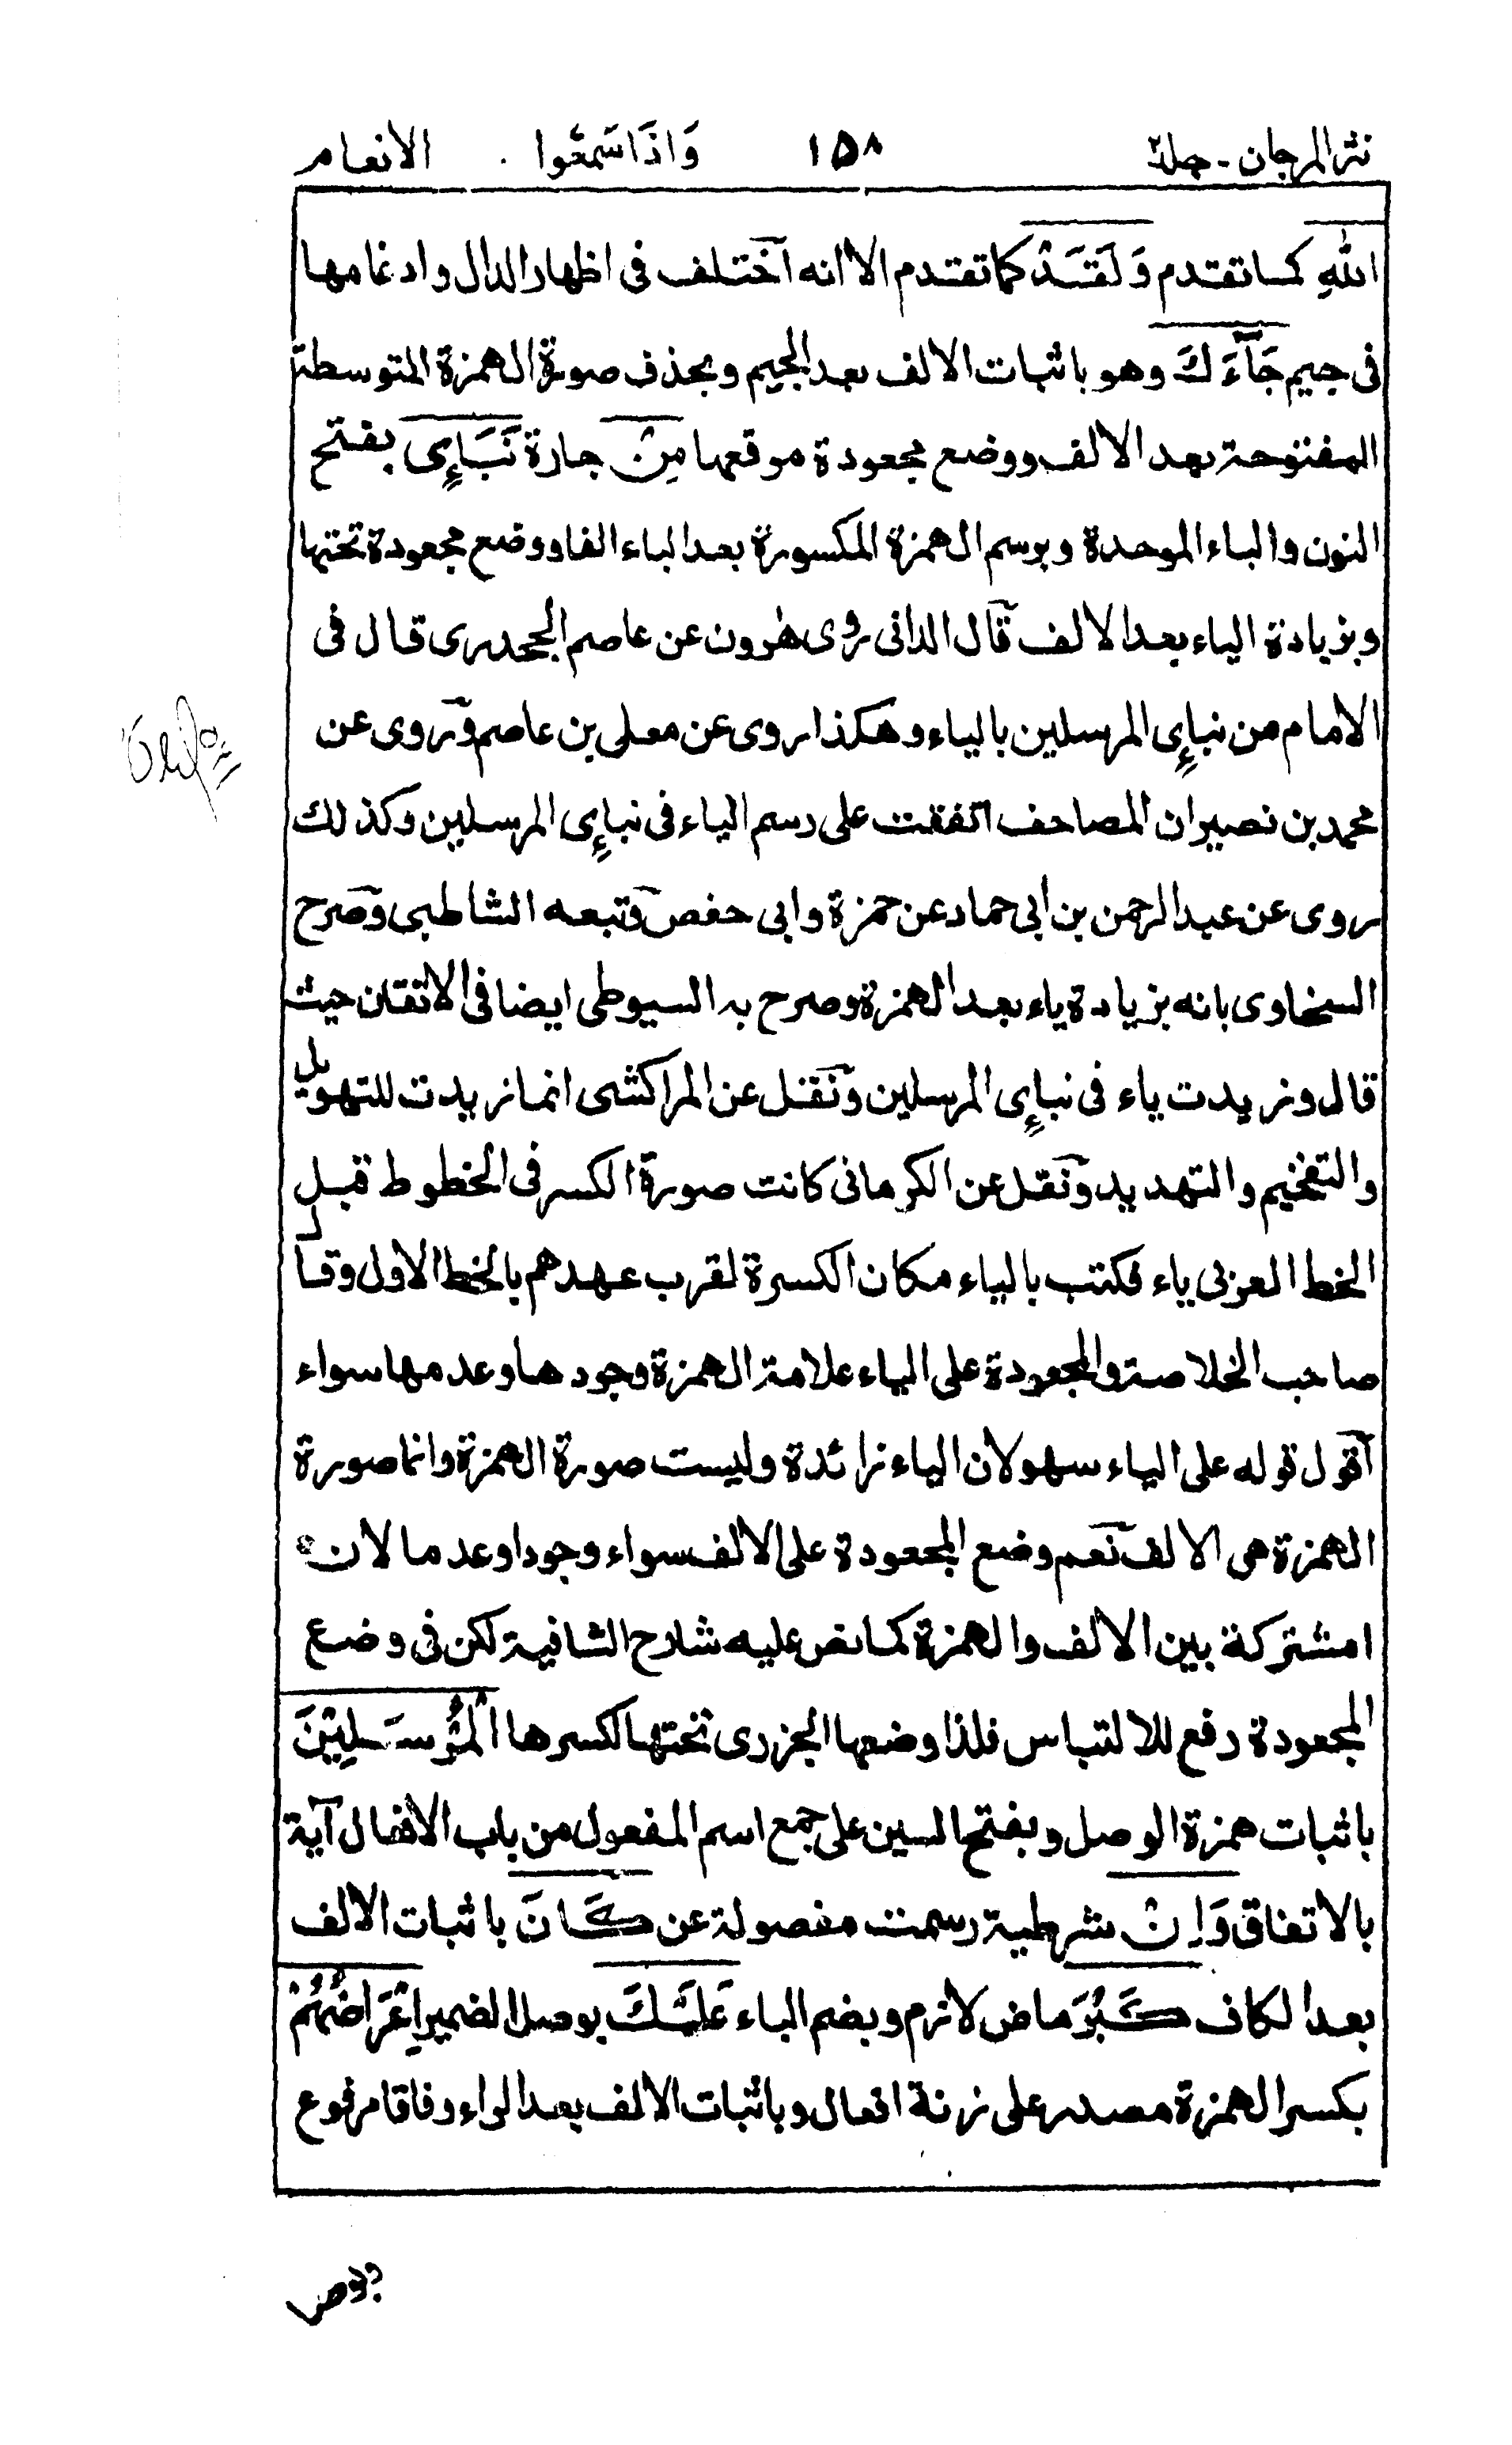 نثر المرجان - جلد٢ ١٥٨ وَاذَا سَمِعُوا الانعام
اللهِ كما تقدم وَلَقَدْ كما تقدم الا انه اختلف فى اظهار الدال وادغامها
فى جيم جَآءَكَ وهو باثبات الالف بعد الجيم وبحذف صورة الهمزة المتوسطة
المفتوحة بعد الالف ووضع مجعودة موقعها مِنْ جارة نَبَإِى بفتح
النون والباء الموحدة وبرسم الهمزة المكسورة بعد الباء الفا ووضع مجعودة تحتها
وبزيادة الياء بعد الالف قال الدانى روى هٰرون عن عاصم الجحدرى قال فى
الامام من نبإى المرسلين بالياء وهكذا روى عن معلى بن عاصم وروى عن
محمد بن نصير ان المصاحف اتفقت على رسم الياء فى نبإى المرسلين وكذلك
روى عن عبد الرحمن بن ابى حماد عن حمزة وابى حفص وتبعه الشاطبى وصرح
السخاوى بانه بزيادة ياء بعد الهمزة وصرح به السيوطى ايضا فى الاتقان حيث
قال وزيدت ياء فى نبإى المرسلين ونقل عن المراكشى انما زيدت للتهويل
والتفخيم والتهديد ونقل عن الكرمانى كانت صورة الكسر فى الخطوط قبل
الخط العربى ياء فكتب بالياء مكان الكسرة لقرب عهدهم بالخط الاول وقال
صاحب الخلاصة والمجعودة على الياء علامة الهمزة وجودها وعدمها سواء
اقول قوله على الياء سهو لان الياء زائدة وليست صورة الهمزة وانما صورة
الهمزة هى الالف نعم وضع المجعودة على الالف سواء وجودا وعدما لان
امشتركة بين الالف والهمزة كما نص عليه شارح الشافية لكن فى وضع
المجعودة دفع للالتباس فلذا وضعها الجزرى تحتها لكسرها الْمُرْسَلِيْنَ
باثبات همزة الوصل وبفتح السين على جمع اسم المفعول من باب الافعال آية
بالاتفاق وَاِنْ شرطية رسمت مفصولة عن كَانَ باثبات الالف
بعد الكاف كَبُرَ ماض لازم وبضم الباء عَلَيْكَ بوصل الضمير اِعْرَاضُهُمْ
بكسر الهمزة مصدر على زنة افعال وباثبات الالف بعد الراء وفاقا مرفوع